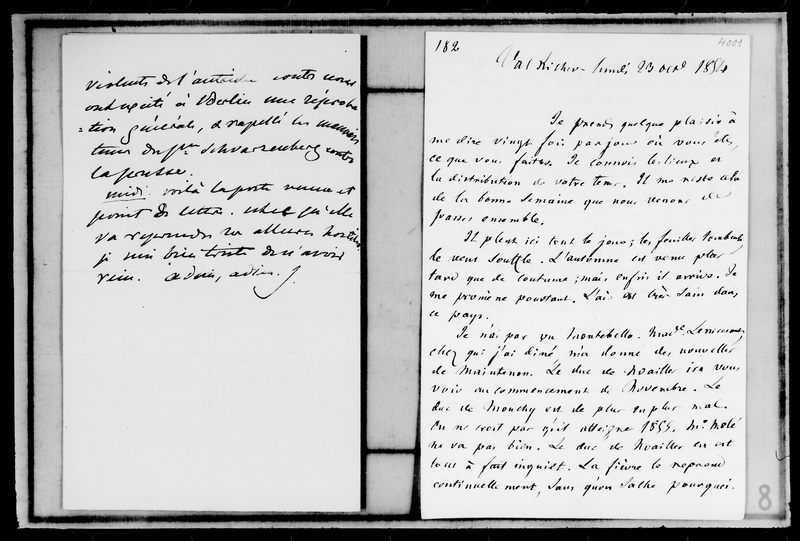 violents de l'autriche contre nous
ont excité à Berlin une réproba
=tion générale, & rappellé les mauvais
tems du Pce Schwarzenberg contre
la prusse.
midi. voilà la poste venue et
point de lettre. est ce qu'elle
va reprendre ses allures hostiles.
je suis bien triste de n'avoir
rien. adieu, adieu.
182
4001
Val Richer - lundi 23 octe 1854
Je prends quelque plaisir à
me dire vingt fois par jour où vous êtes,
ce que vous faites. Je connois les lieux et
la distribution de votre tems. Il me reste cela
de la bonne semaine que nous venons de
passer ensemble.
Il pleut ici tout le jour ; les feuilles tombent,
le vent souffle. L'automne est venu plus
tard que de coutume ; mais enfin il arrive. Je
me promène pourtant. L'air est très sain dans
ce pays.
Je n'ai pas vu Montebello. Made Lenormant,
chez qui j'ai diné, m'a donné des nouvelles
de Maintenon. Le duc de Noailles ira vous
voir au commencement de Novembre. Le
duc de Mouchy est de plus en plus mal.
On ne croit pas qu'il atteigne 1855. Mr Molé
ne va pas bien. Le duc de Noailles en est
tout à fait inquiet. La fièvre le reprend
continuellement, sans qu'on sache pourquoi.
8